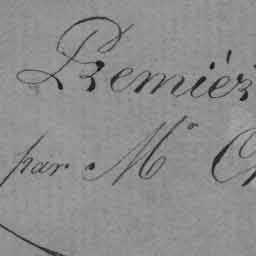 Premièr
par M.r